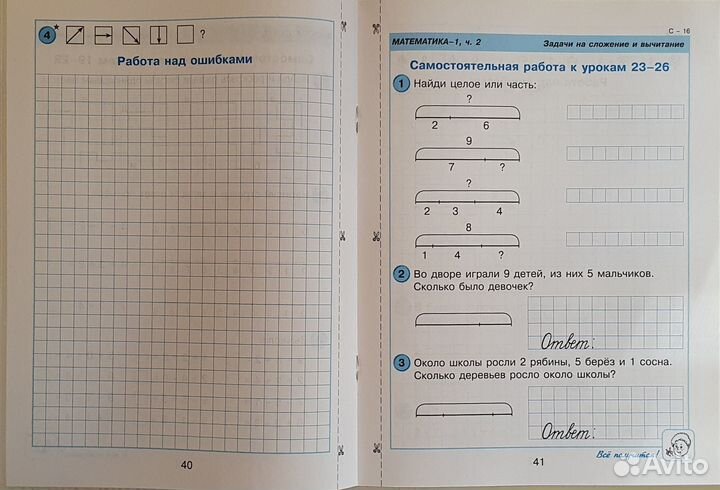 4* ?
Работа над ошибками
40
С - 16
МАТЕМАТИКА–1, ч. 2 Задачи на сложение и вычитание
Самостоятельная работа к урокам 23–26
1 Найди целое или часть:
?
2 6
9
7 ?
?
2 3 4
8
1 4 ?
2 Во дворе играли 9 детей, из них 5 мальчиков.
Сколько было девочек?
Ответ:
3 Около школы росли 2 рябины, 5 берёз и 1 сосна.
Сколько деревьев росло около школы?
Ответ:
Всё получится!
41
Avito